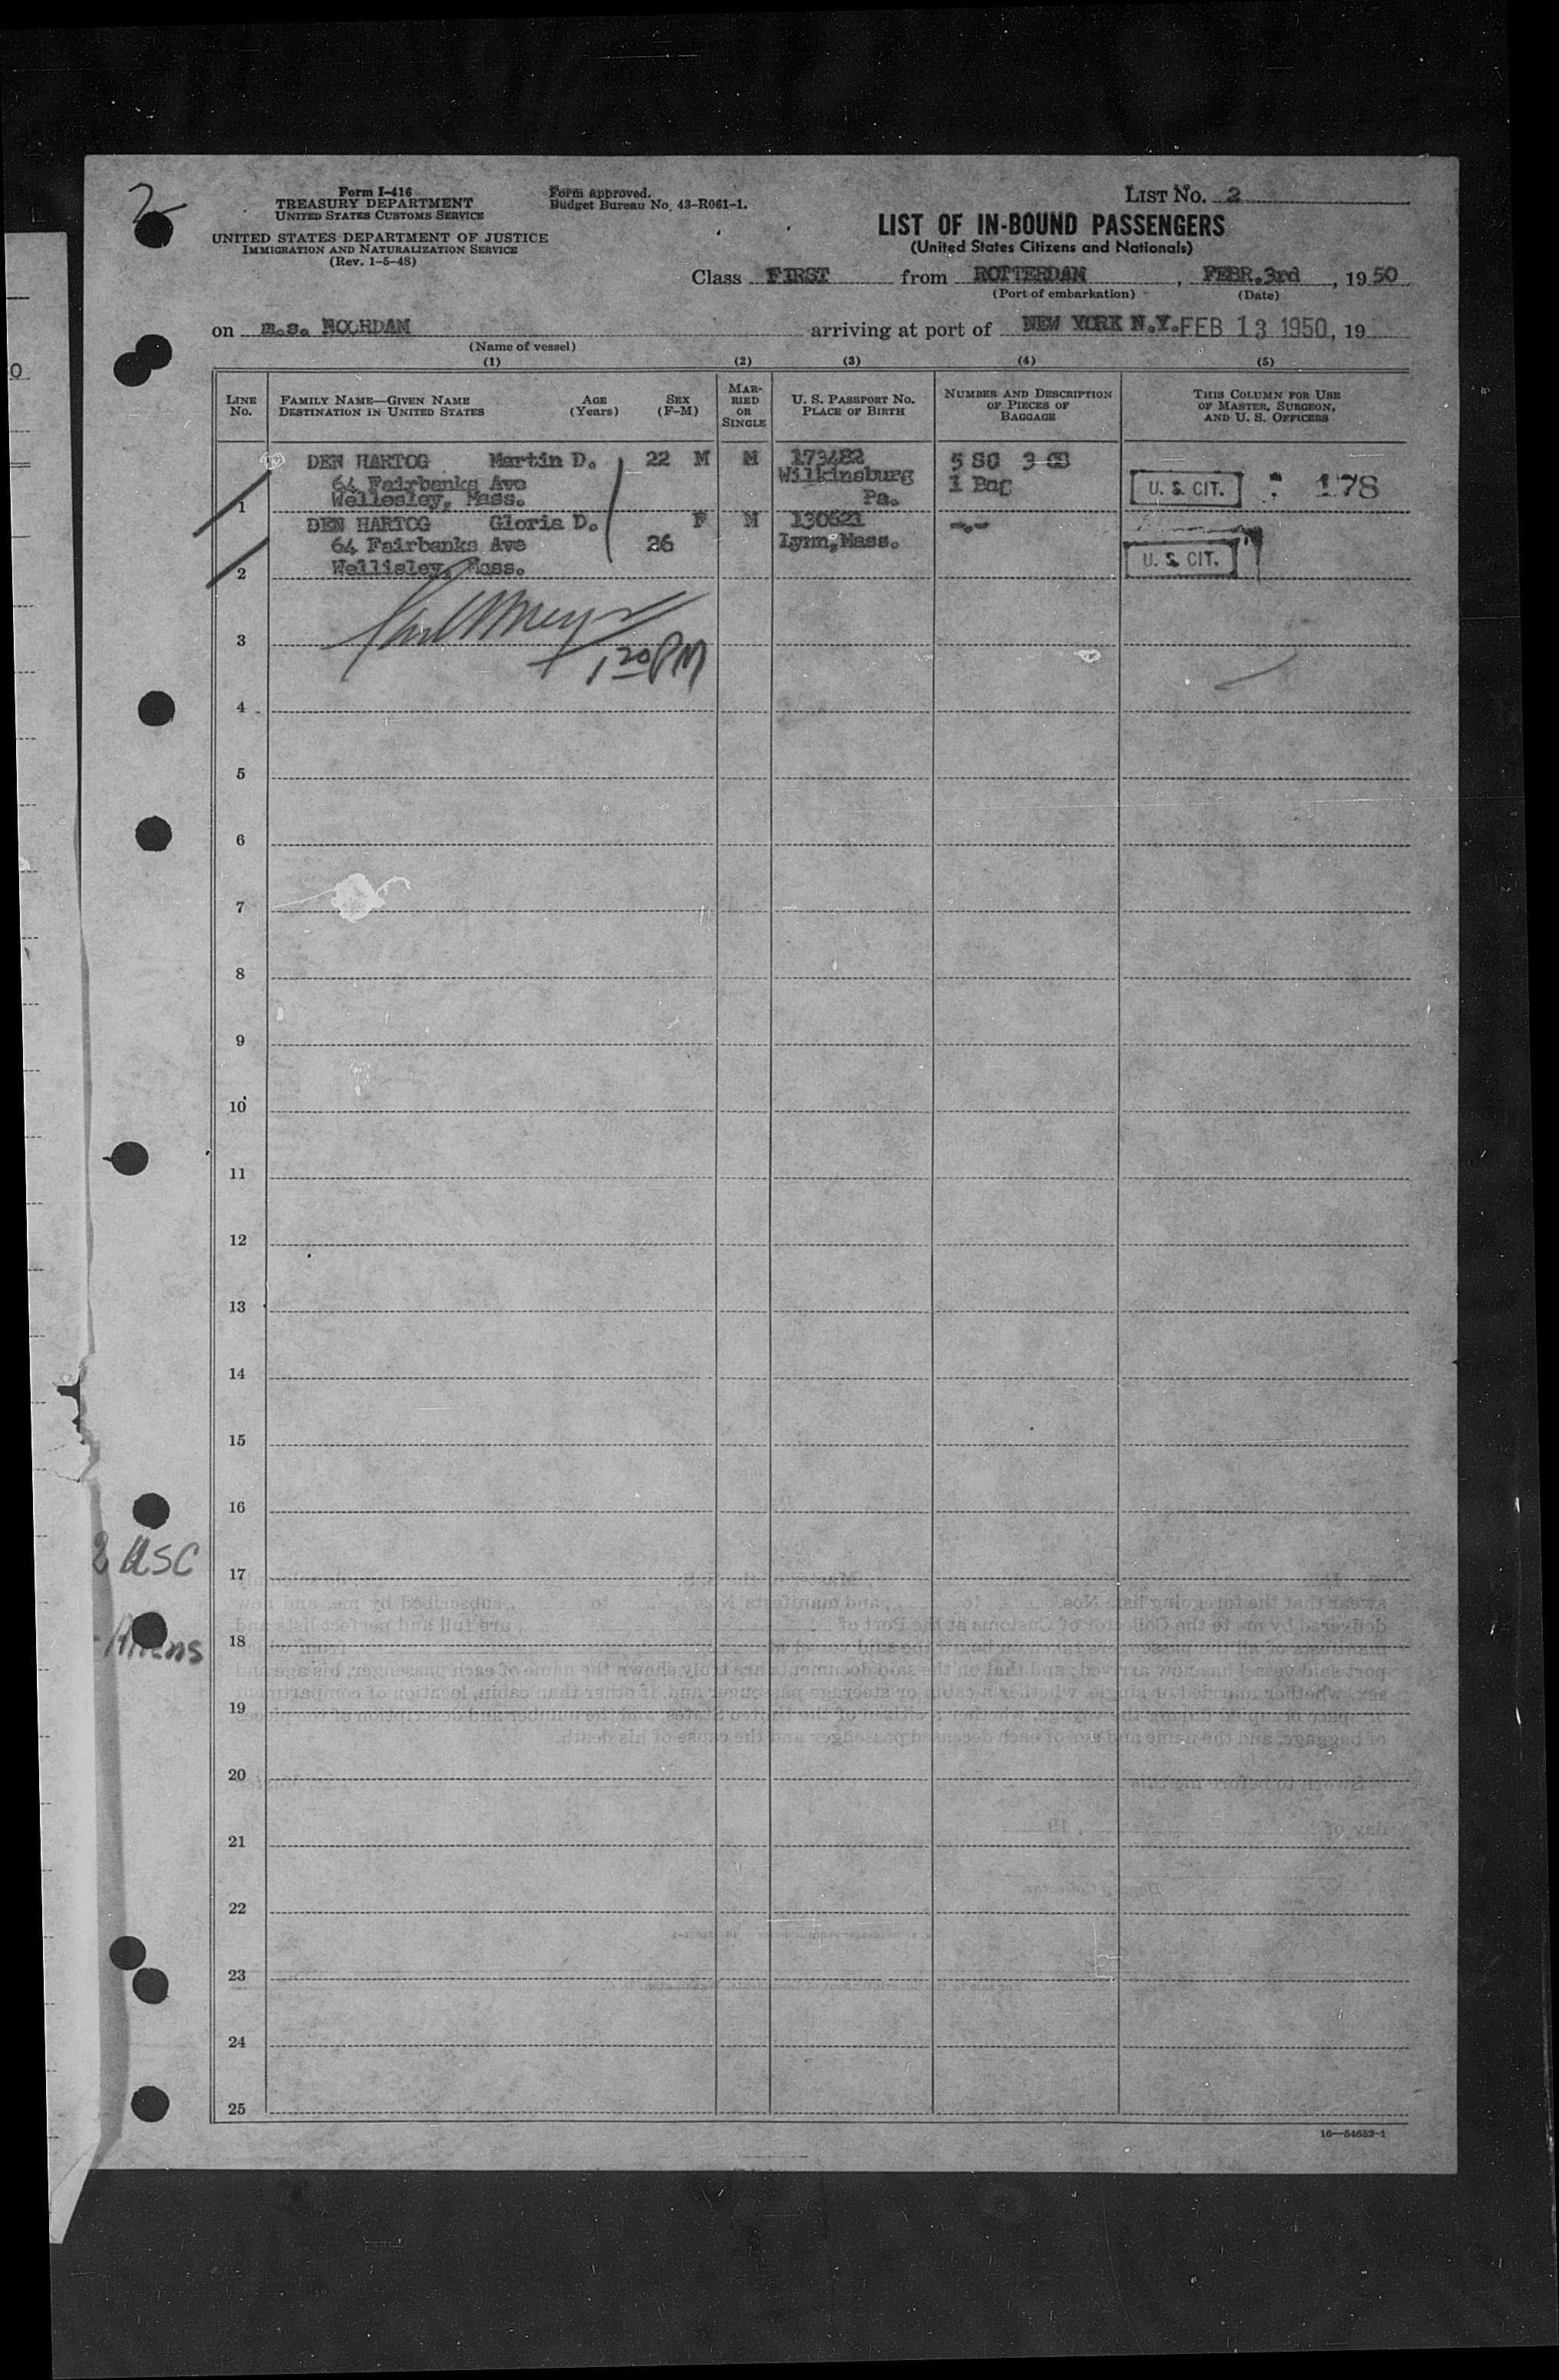 2
Form I-416
TREASURY DEPARTMENT
UNITED STATES CUSTOMS SERVICE
UNITED STATES DEPARTMENT OF JUSTICE
IMMIGRATION AND NATURALIZATION SERVICE
(Rev. 1-5-48)
Form approved.
Budget Bureau No. 43-R061-1.
LIST NO. 2
LIST OF IN-BOUND PASSENGERS
(United States Citizens and Nationals)
Class FIRST from ROTTERDAM, FEBR.3rd, 19 50
(Port of embarkation) (Date)
on m.s. NOORDAM arriving at port of NEW YORK N.Y. FEB 13 1950, 19
(Name of vessel)
(1) (2) (3) (4) (5)
LINE No. FAMILY NAME—GIVEN NAME DESTINATION IN UNITED STATES AGE (Years) SEX (F-M) MARRIED OR SINGLE U. S. PASSPORT NO. PLACE OF BIRTH NUMBER AND DESCRIPTION OF PIECES OF BAGGAGE THIS COLUMN FOR USE OF MASTER, SURGEON, AND U. S. OFFICERS
DEN HARTOG Martin D. 22 M M 173482 5 SC 3
64 Fairbanks Ave Wilkinsburg 1 Bag
1 Wellesley, Mass. Pa. U. S. CIT. : 178
DEN HARTOG Gloria D. F M 130621 -.-
64 Fairbanks Ave 26 Lynn, Mass.
2 Wellisley, Mass. U. S. CIT.
3
1 20 PM
4
5
6
7
8
9
10
11
12
13
14
15
16
USC
17
18
Aliens
19
20
21
22
23
24
25
16—54652-1